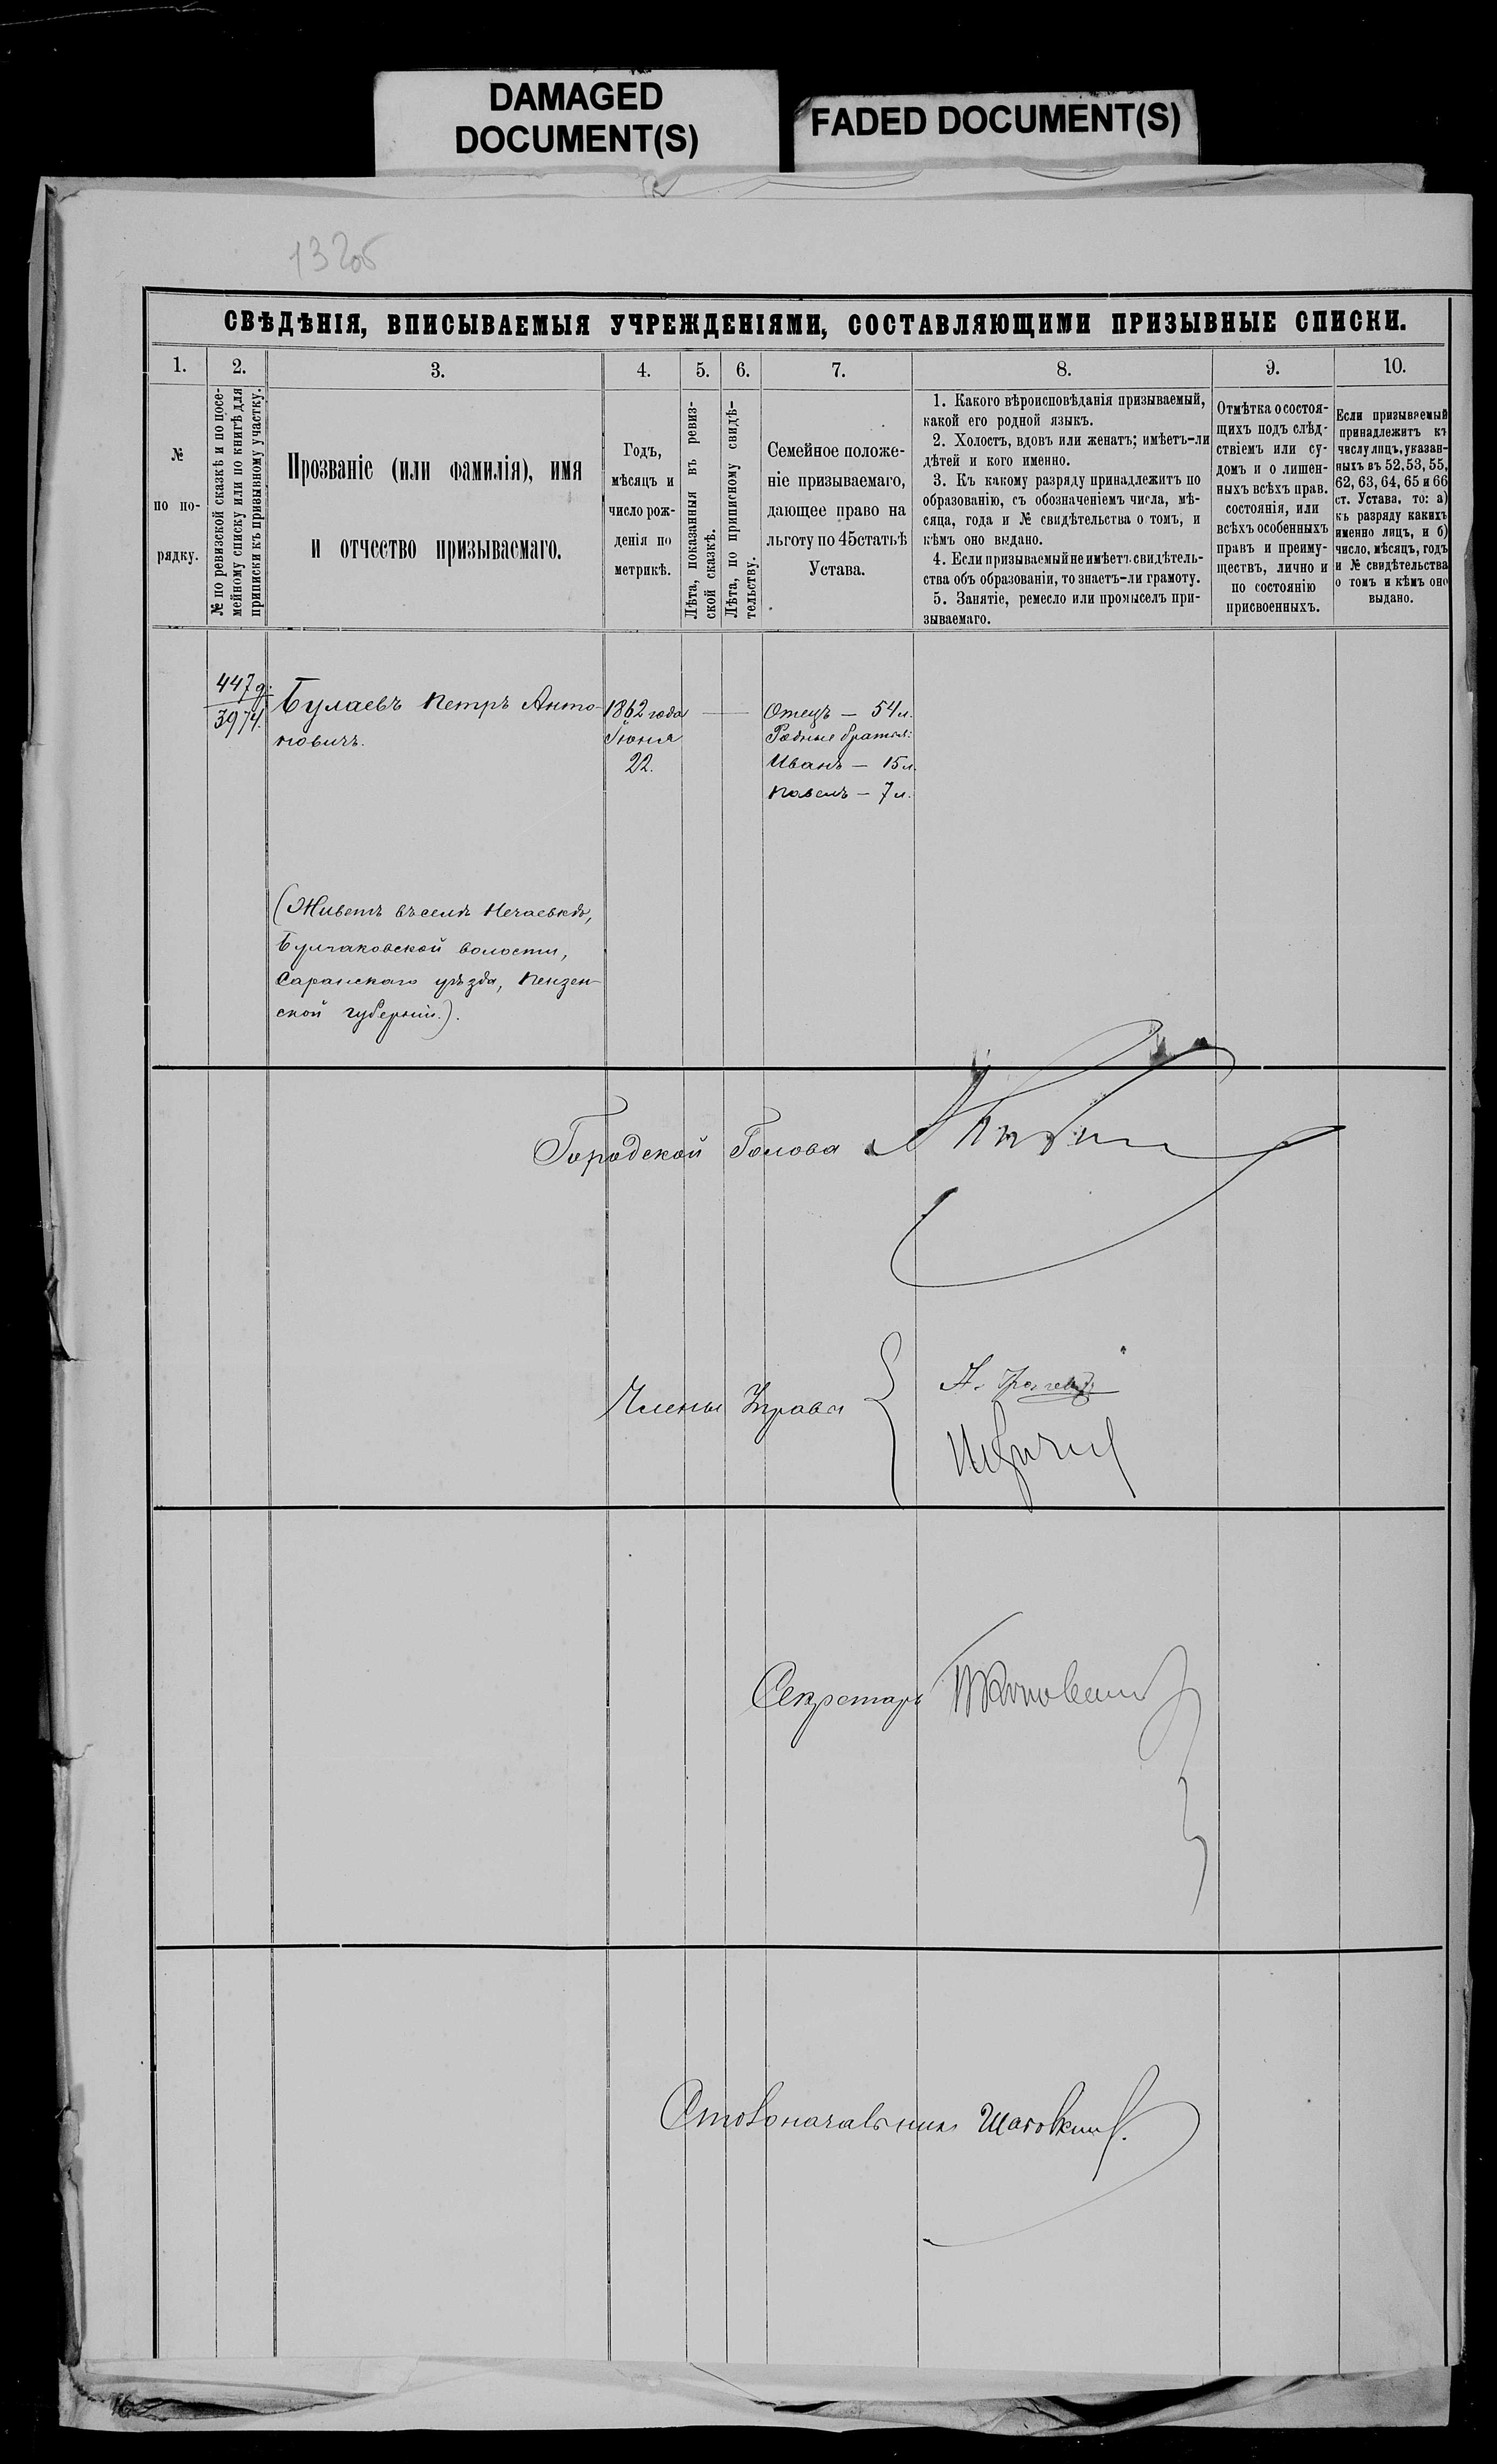 DAMAGED
DOCUMENT(S)
FADED DOCUMENT(S)
132об
СВѢДѢНІЯ, ВПИСЫВАЕМЫЯ УЧРЕЖДЕНІЯМИ, СОСТАВЛЯЮЩИМИ ПРИЗЫВНЫЕ СПИСКИ.
1.
2.
3.
4.
5.
6.
7.
8.
9.
10.
№
по по-
рядку.
№ по ревизской сказкѣ и по посе-
мейному списку или по книгѣ для
приписки къ призывному участку.
Прозваніе (или фамилія), имя
и отчество призываемаго.
Годъ,
мѣсяцъ и
число рож-
денія по
метрикѣ.
Лѣта, показанныя въ ревиз-
ской сказкѣ.
Лѣта, по приписному свидѣ-
тельству.
Семейное положе-
ніе призываемаго,
дающее право на
льготу по 45 статьѣ
Устава.
1. Какого вѣроисповѣданія призываемый,
какой его родной языкъ.
2. Холостъ, вдовъ или женатъ; имѣетъ-ли
дѣтей и кого именно.
3. Къ какому разряду принадлежитъ по
образованію, съ обозначеніемъ числа, мѣ-
сяца, года и № свидѣтельства о томъ, и
кѣмъ оно выдано.
4. Если призываемый не имѣетъ свидѣтель-
ства объ образованіи, то знаетъ-ли грамоту.
5. Занятіе, ремесло или промыселъ при-
зываемаго.
Отмѣтка о состоя-
щихъ подъ слѣд-
ствіемъ или су-
домъ и о лишен-
ныхъ всѣхъ прав.
состоянія, или
всѣхъ особенныхъ
правъ и преиму-
ществъ, лично и
по состоянію
присвоенныхъ.
Если призываемый
принадлежитъ къ
числу лицъ, указан-
ныхъ въ 52, 53, 55,
62, 63, 64, 65 и 66
ст. Устава, то: а)
къ разряду какихъ
именно лицъ, и б)
число, мѣсяцъ, годъ
и № свидѣтельства
о томъ и кѣмъ оно
выдано.
447 д.
3974.
Булаевъ Петръ Анто-
новичъ.
1862 года
Іюня
22.
Отецъ — 54 л.
Родные братья:
Иванъ — 15 л.
Павелъ — 7 л.
(Живетъ въ селѣ Нечаевкѣ,
Булгаковской волости,
Саранскаго уѣзда, Пензен-
ской губерніи.).
Городской Голова
Члены Управы
Секретарь
Столоначальникъ